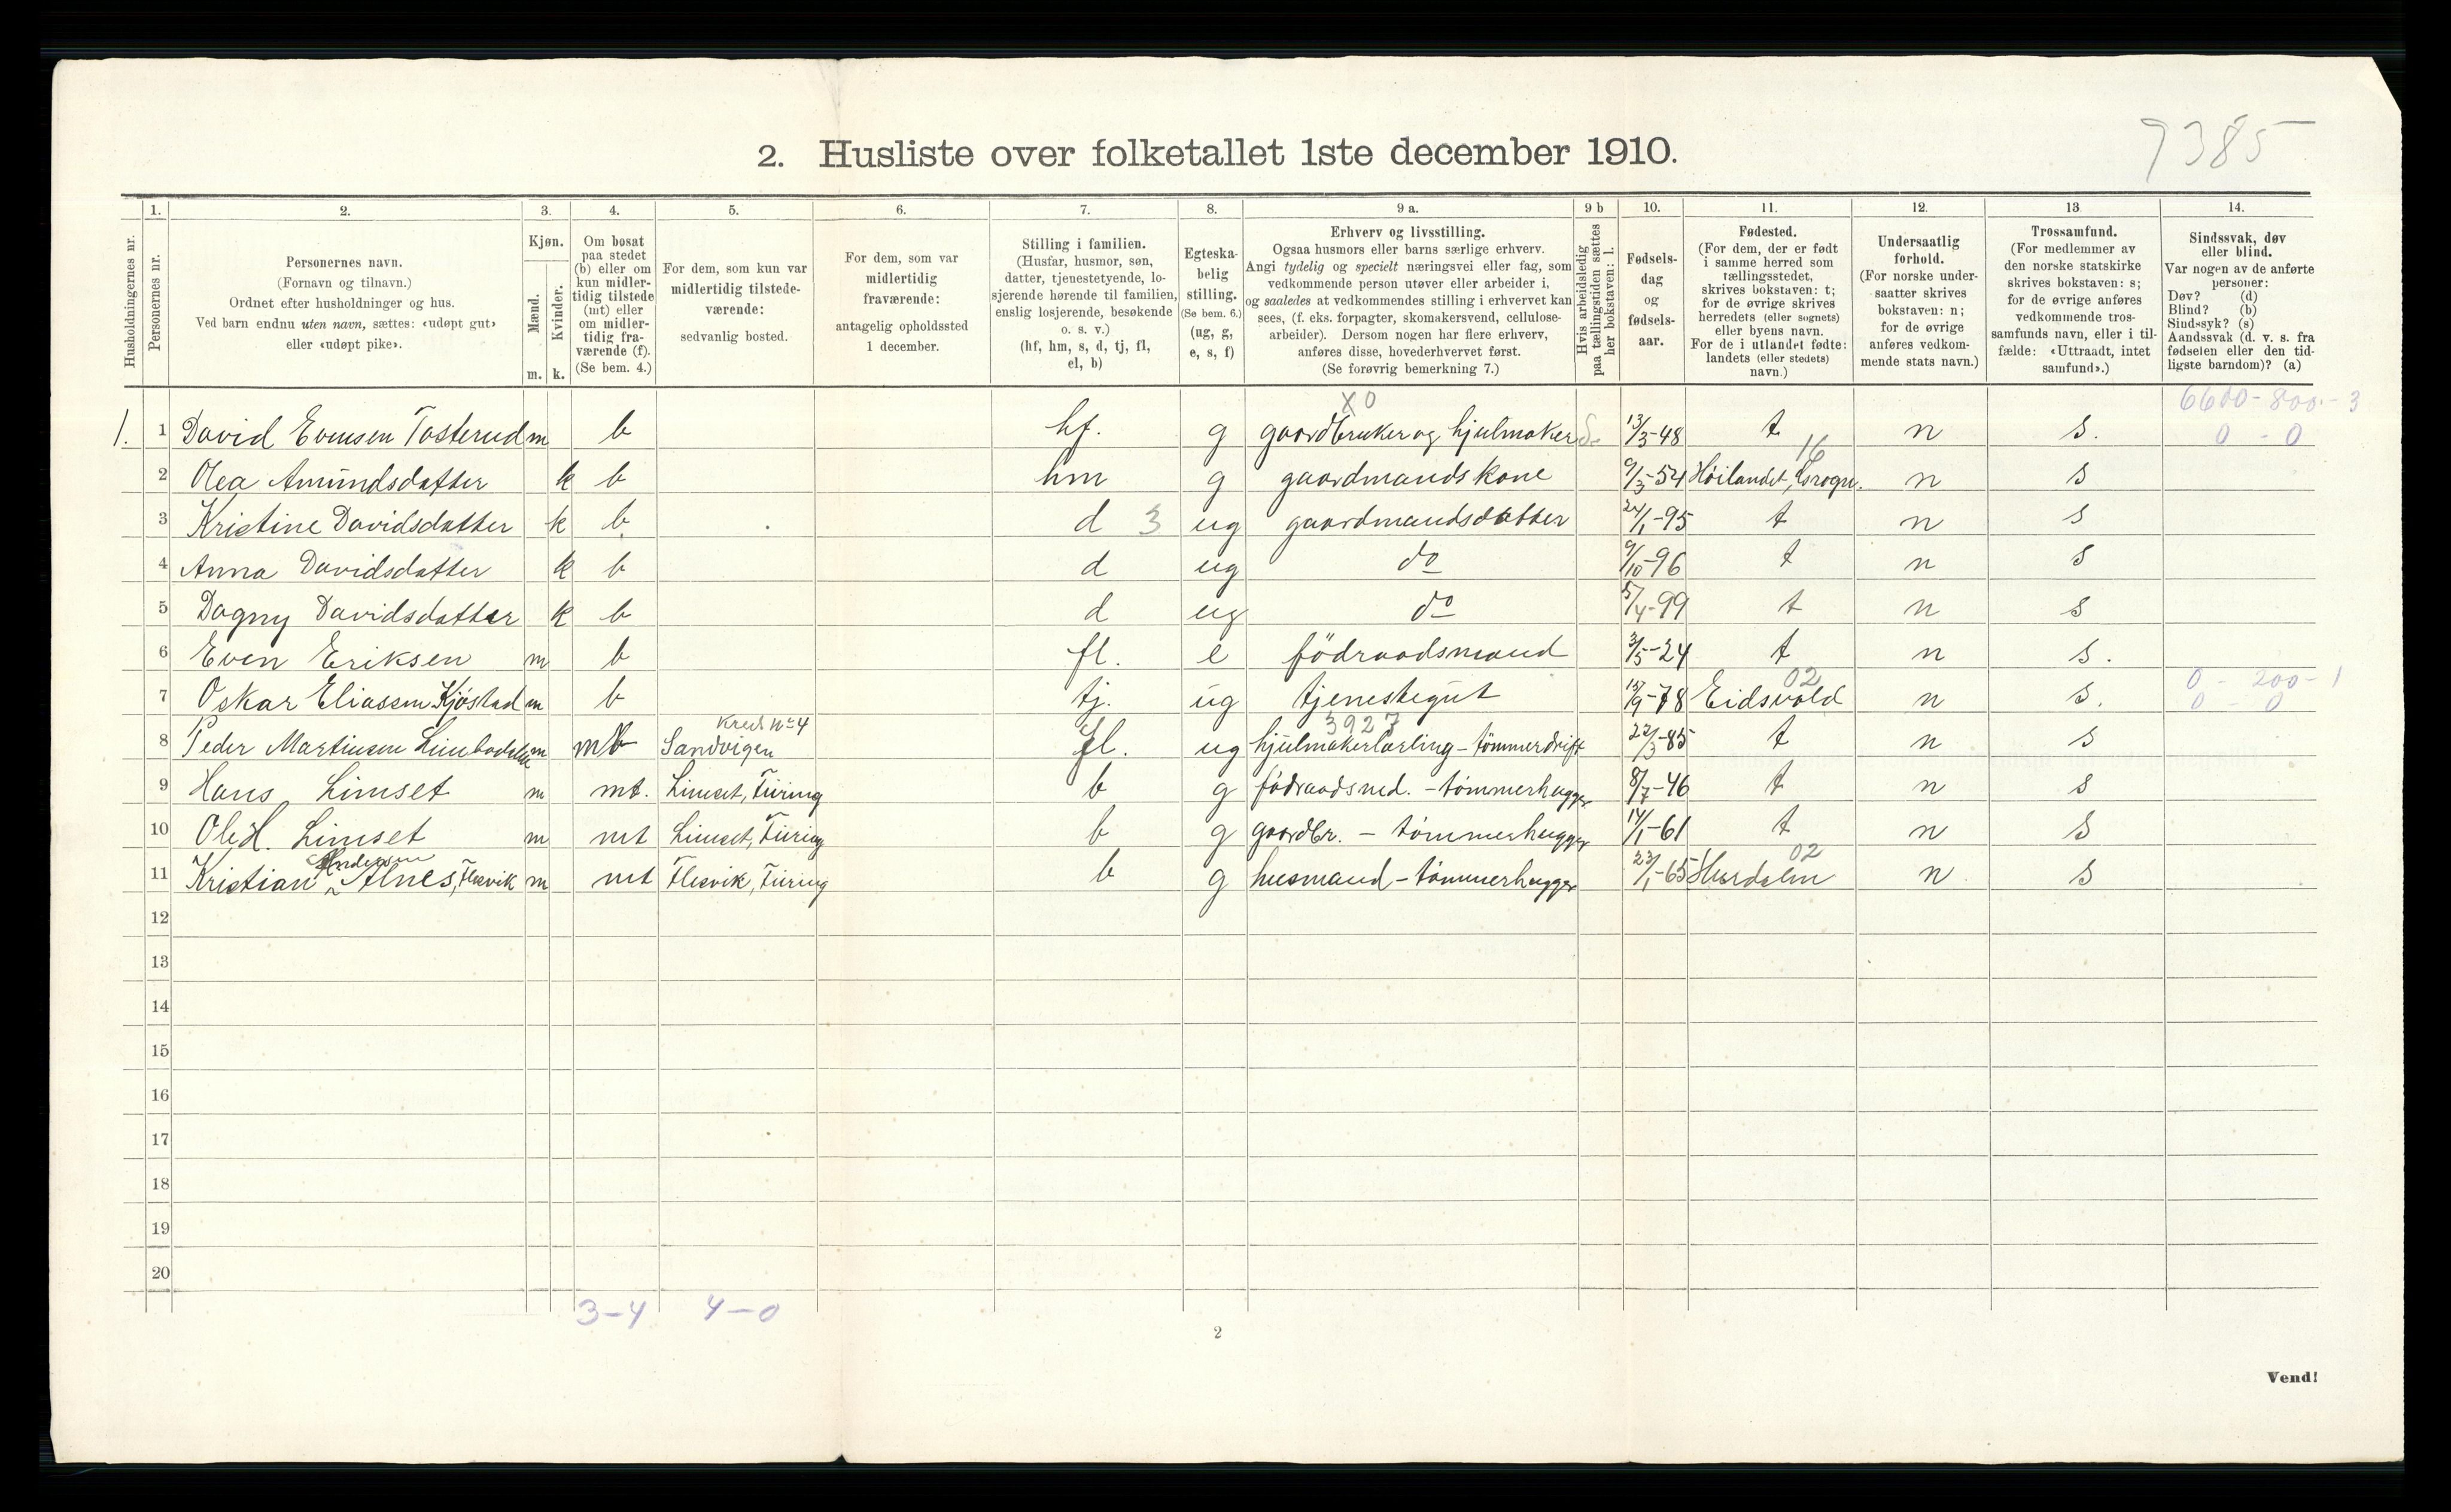 9385
2. Husliste over folketallet 1ste december 1910.
Husholdningernes nr.
1.
Personernes nr.
2.
Personernes navn.
(Fornavn og tilnavn.)
Ordnet efter husholdninger og hus.
Ved barn endnu uten navn, sættes: «udøpt gut»
eller «udøpt pike».
3.
Kjøn.
Mænd.
Kvinder.
m. k.
4.
Om bosat
paa stedet
(b) eller om
kun midler-
tidig tilstede
(mt) eller
om midler-
tidig fra-
værende (f).
(Se bem. 4.)
5.
For dem, som kun var
midlertidig tilstede-
værende:
sedvanlig bosted.
6.
For dem, som var
midlertidig
fraværende:
antagelig opholdssted
1 december.
7.
Stilling i familien.
(Husfar, husmor, søn,
datter, tjenestetyende, lo-
sjerende hørende til familien,
enslig losjerende, besøkende
o. s. v.)
(hf, hm, s, d, tj, fl,
el, b)
8.
Egteska-
belig
stilling.
(Se bem. 6.)
(ug, g,
e, s, f)
9 a.
Erhverv og livsstilling.
Ogsaa husmors eller barns særlige erhverv.
Angi tydelig og specielt næringsvei eller fag, som
vedkommende person utøver eller arbeider i,
og saaledes at vedkommendes stilling i erhvervet kan
sees, (f. eks. forpagter, skomakersvend, cellulose-
arbeider). Dersom nogen har flere erhverv,
anføres disse, hovederhvervet først.
(Se forøvrig bemerkning 7.)
9 b
Hvis arbeidsledig
paa tællingstiden sættes
her bokstaven: l.
10.
Fødsels-
dag
og
fødsels-
aar.
11.
Fødested.
(For dem, der er født
i samme herred som
tællingsstedet,
skrives bokstaven: t;
for de øvrige skrives
herredets (eller sognets)
eller byens navn.
For de i utlandet fødte:
landets (eller stedets)
navn.)
12.
Undersaatlig
forhold.
(For norske under-
saatter skrives
bokstaven: n;
for de øvrige
anføres vedkom-
mende stats navn.)
13
Trossamfund.
(For medlemmer av
den norske statskirke
skrives bokstaven: s;
for de øvrige anføres
vedkommende tros-
samfunds navn, eller i til-
fælde: «Uttraadt, intet
samfund».)
14.
Sindssvak, døv
eller blind.
Var nogen av de anførte
personer:
Døv? (d)
Blind? (b)
Sindssyk? (s)
Aandssvak (d. v. s. fra
fødselen eller den tid-
ligste barndom)? (a)
x0 6600-800-3
1. 1 David Evensen Tosterud m b hf. g gaardbruker og hjulmaker 13/3-48 t n s. 0 - 0
16
2 Olea Amundsdatter k b hm g gaardmandskone 9/3-54 Høilandet, n s
3 Kristine Davidsdatter k b d 3 ug gaardmandsdatter 24/1-95 t n s
4 Anna Davidsdatter k b d ug do 9/10-96 t n s
5 Dagny Davidsdatter k b d ug do 5/4-99 t n s
6 Even Eriksen m b fl. e födraadsmand 3/5-24 t n s.
02 0 - 200-1
7 Oskar Eliassen Kjöstad m b tj. ug tjenestegut 15/9-78 Eidsvold n s. 0 - 0
Kreds No 4 3927
8 Peder Martinsen m Sandvigen fl. ug hjulmakerlærling - tömmerdrift 22/3-85 t n s
9 Hans Limset m mt. Limset, Fiiring b g födraadsmd. - tömmerhugger 8/7-46 t n s
10 Ole H. Limset m mt Limset, Fiiring b g gaardbr. - tömmerhugger 14/1-61 t n s
Andersen 02
11 Kristian Alnes, Flesvik m mt Flesvik, Fiiring b g husmand - tömmerhugger 23/1-65 Hurdalen n s
12
13
14
15
16
17
18
19
20
3-4 4-0
2
Vend!